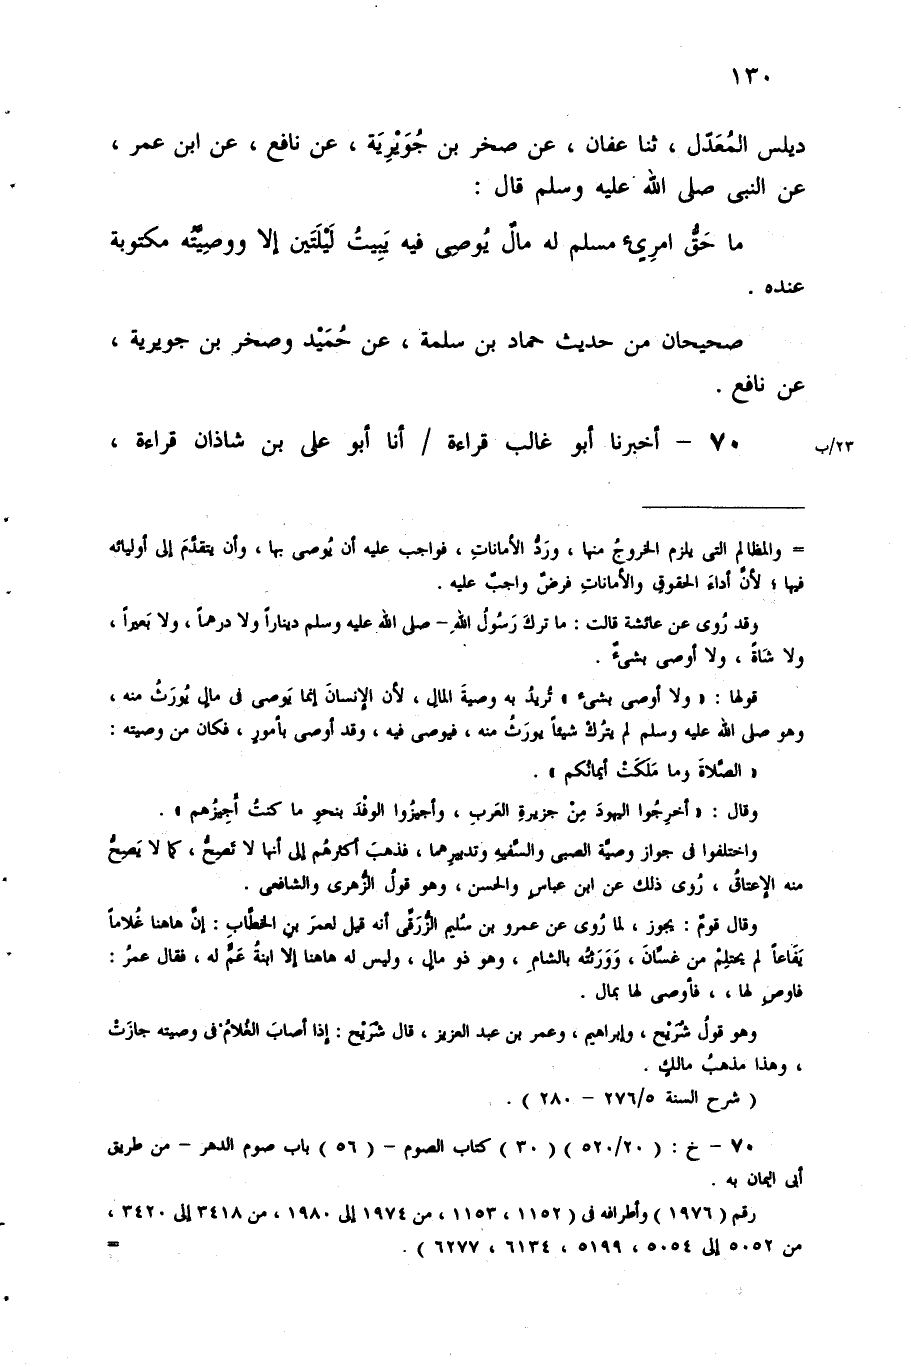 ١٣٠
ديلس المُعَدّل ، ثنا عفان ، عن صخر بن جُوَيْرِيَة ، عن نافع ، عن ابن عمر ،
عن النبى صلى الله عليه وسلم قال :
ما حَقُّ امرِيءٍ مسلم له مالٌ يُوصِى فيه يَبِيتُ لَيْلَتَين إلا ووصِيَّتُه مكتوبة
عنده .
صحيحان من حديث حماد بن سلمة ، عن حُمَيْد وصخر بن جويرية ،
عن نافع .
٧٠ – أخبرنا أبو غالب قراءة / أنا أبو على بن شاذان قراءة ،
٢٣/ب
= والمظالم التى يلزم الخروجُ منها ، ورَدُّ الأماناتِ ، فواجب عليه أن يُوصى بها ، وأن يتقدَّمَ إلى أوليائه
فيها ؛ لأنَّ أداءَ الحقوقِ والأماناتِ فرضٌ واجبٌ عليه .
وقد رُوى عن عائشة قالت : ما تركَ رَسُولُ اللهِ – صلى الله عليه وسلم ديناراً ولا درهماً ، ولا بَعيراً ،
ولا شَاةً ، ولا أوصى بشىءٌ .
قولها : « ولا أوصى بشىء » تُريدُ به وصيةَ المالِ ، لأن الإنسانَ إنما يَوصى فى مالٍ يُورَثُ منه ،
وهو صلى الله عليه وسلم لم يترُكْ شيئاً يورَثُ منه ، فيوصى فيه ، وقد أوصى بأمورٍ ، فكان من وصيته :
« الصَّلاةَ وما مَلَكَتْ أيمانُكم » .
وقال : « أخرِجُوا اليهودَ مِنْ جزيرةِ العَربِ ، وأجيزُوا الوفْدَ بنحوِ ما كنتُ أُجِيزُهم » .
واختلفوا فى جواز وصيَّة الصبى والسَّفيهِ وتدبيرِهما ، فذهبَ أكثرهُم إلى أنها لا تَصِحُّ ، كما لا يَصِحُّ
منه الإعتاقُ ، رُوى ذلك عن ابن عباسٍ والحسن ، وهو قولُ الزُّهرى والشافعى .
وقال قومٌ : يجوز ، لما رُوى عن عمرو بن سُليم الزُّرَقَّى أنه قيل لعمرَ بنِ الخطَّابِ : إنَّ هاهنا غُلاماً
يَفَاعاً لم يحتلِمْ من غسَّانَ ، وَوَرَثَتُه بالشامِ ، وهو ذو مالٍ ، وليس له هاهنا إلا ابنةُ عَمٌّ له ، فقال عمرُ :
فاوصِ لها ، ، فأوصى لها بمال .
وهو قولُ شُرَيْحٍ ، وإبراهيم ، وعمر بن عبد العزيز ، قال شُرَيْح : إذا أصابَ الغُلامُ فى وصيته جازَتْ
، وهذا مذهبُ مالكٍ .
( شرح السنة ٢٧٦/٥ – ٢٨٠ ) .
٧٠ – خ : ( ٥٢٠/٢٠ ) ( ٣٠ ) كتاب الصوم – ( ٥٦ ) باب صوم الدهر – من طريق
أبى اليمان به .
رقم ( ١٩٧٦ ) وأطرافه فى ( ١١٥٢ ، ١١٥٣ ، من ١٩٧٤ إلى ١٩٨٠ ، من ٣٤١٨ إلى ٣٤٢٠ ،
من ٥٠٥٢ إلى ٥٠٥٤ ، ٥١٩٩ ، ٦١٣٤ ، ٦٢٧٧ ) . =